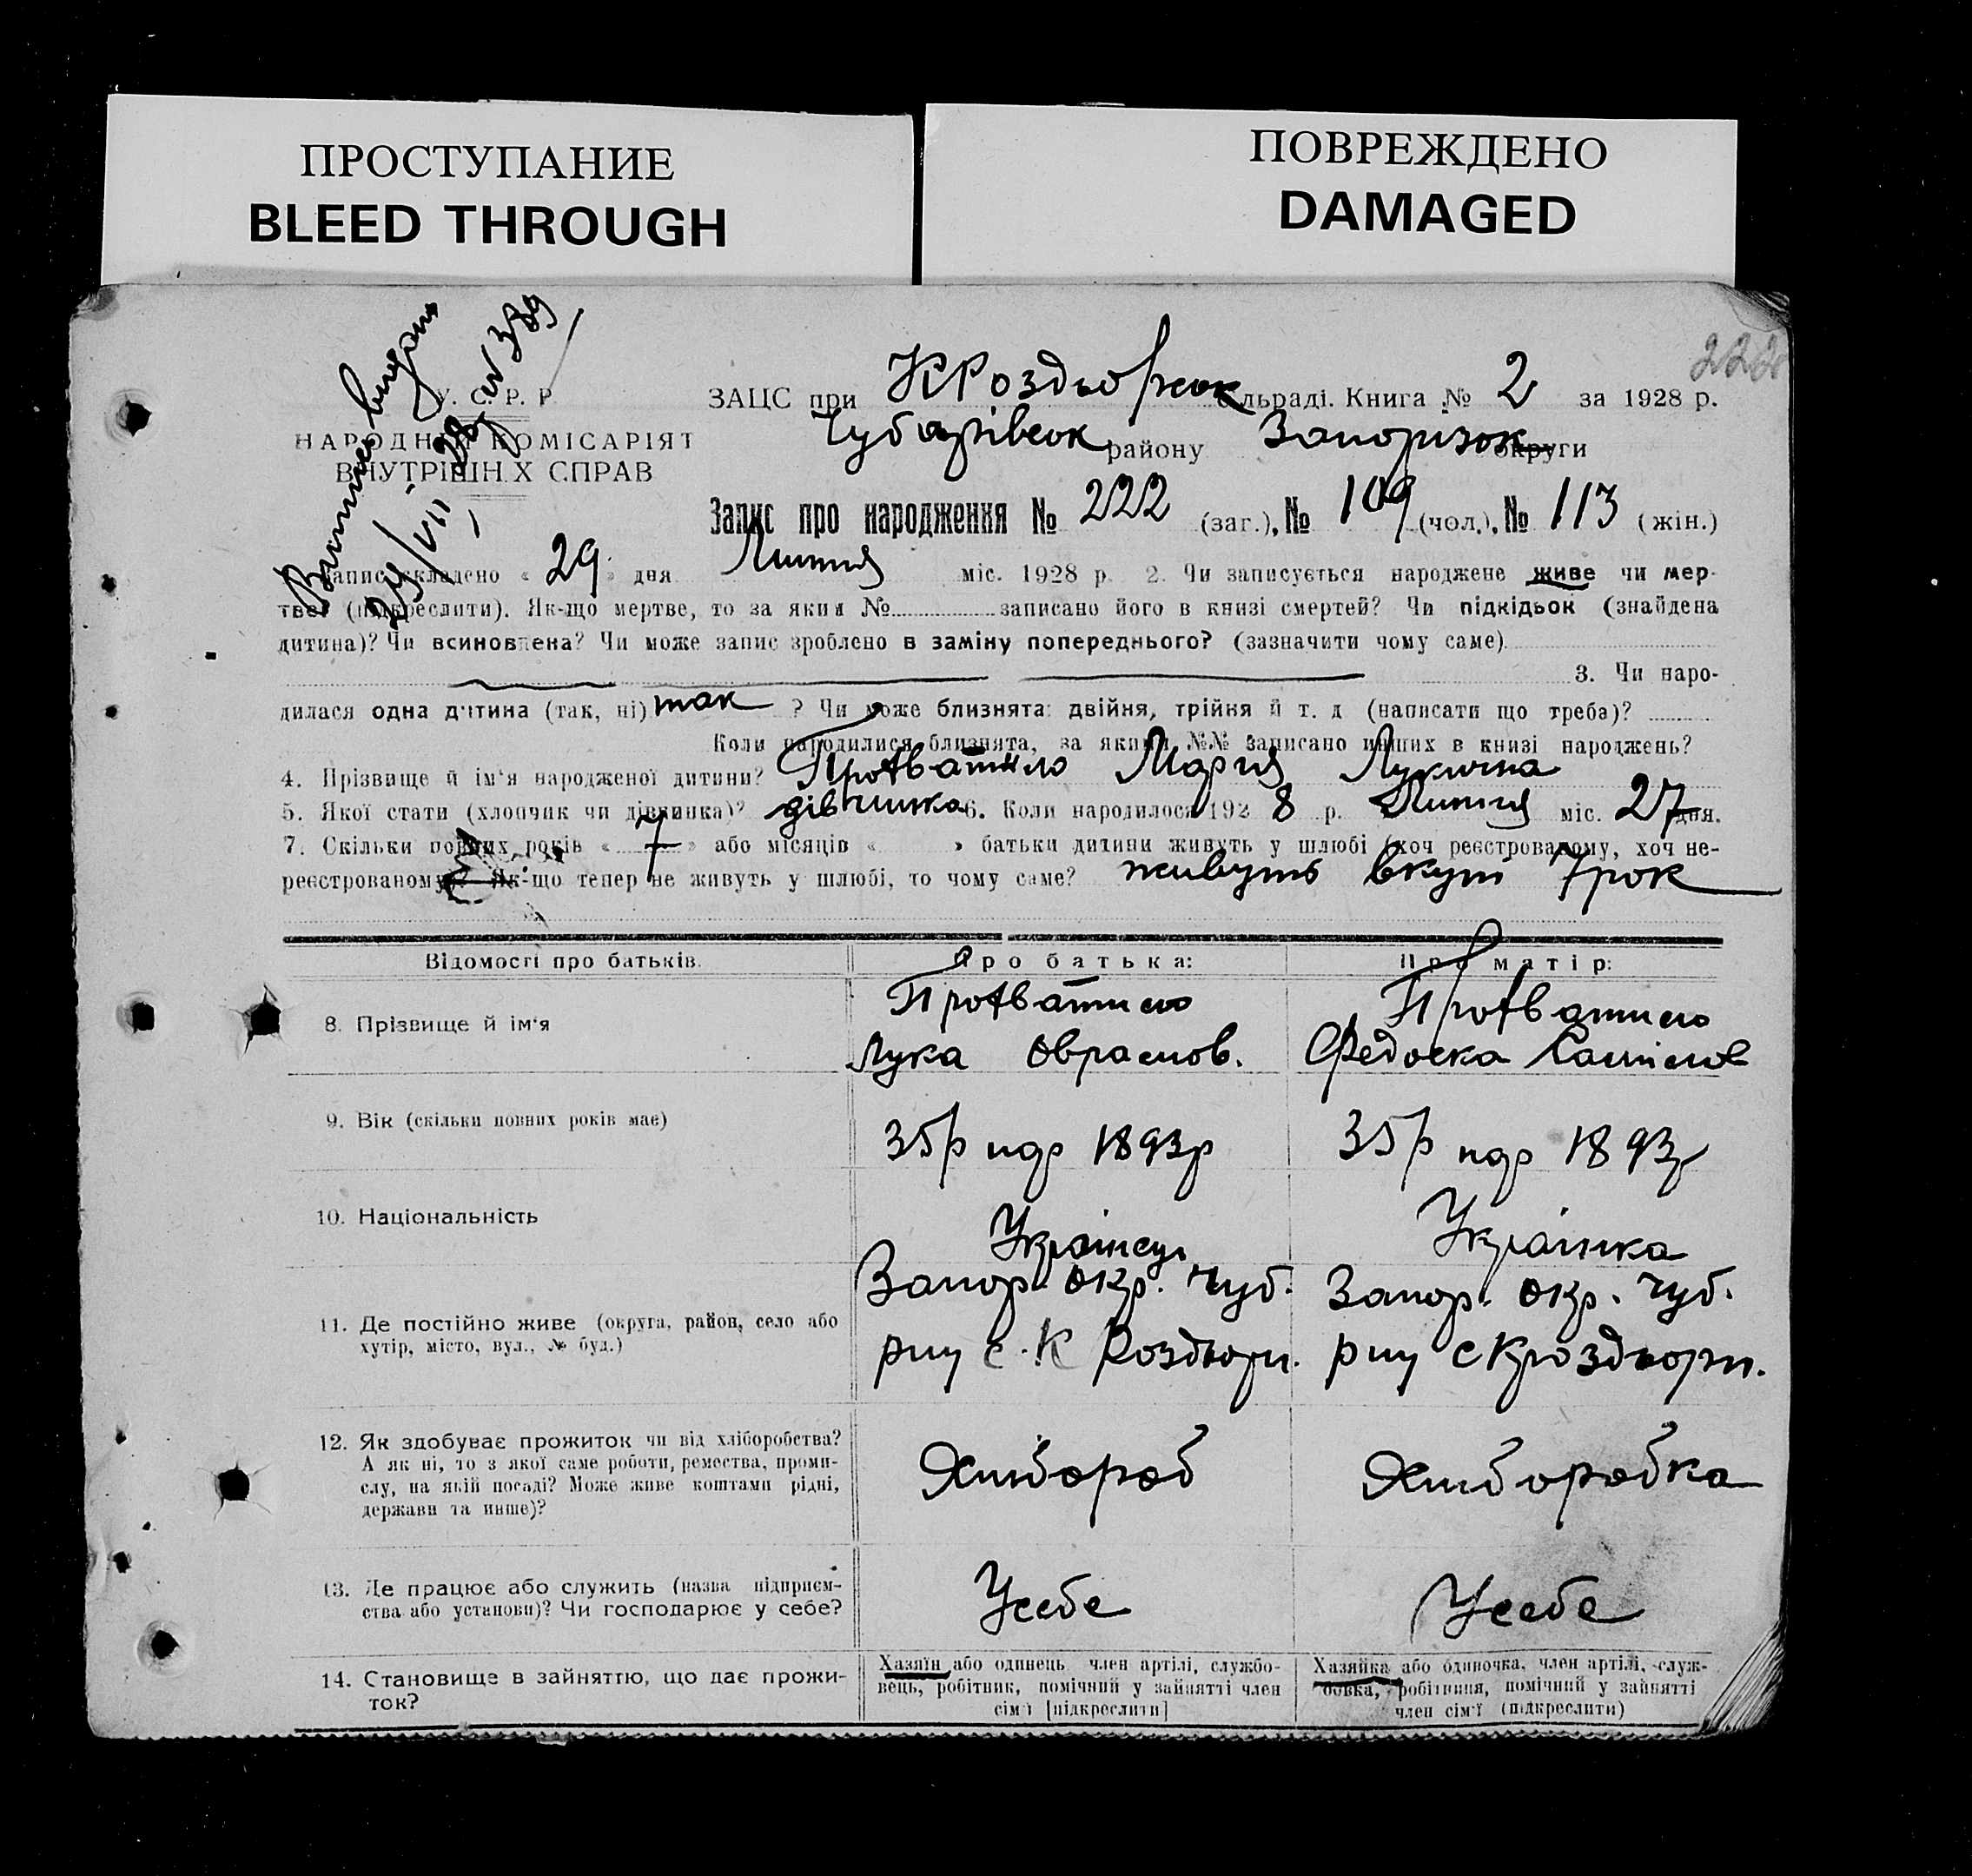 ПРОСТУПАНИЕ
BLEED THROUGH
ПОВРЕЖДЕНО
DAMAGED
222
У. С. Р. Р.
НАРОДНІЙ КОМІСАРІЯТ
ВНУТРІШНІХ СПРАВ
Витяг видано
ЗАЦС при К Роздьорськ сільраді. Книга № 2 за 1928 р.
Чубарівськ району Запорізьк округи
Запис про народження № 222 (заг.), № 109 (чол.), № 113 (жін.)
Запис складено « 29 » дня Липня міс. 1928 р. 2. Чи записується народжене живе чи мер-
тве? (підкреслити). Як-що мертве, то за яким № записано його в книзі смертей? Чи підкідьок (знайдена
дитина)? Чи всиновлена? Чи може запис зроблено в заміну попереднього? (зазначити чому саме)
3. Чи наро-
дилася одна дитина (так, ні) так ? Чи може близнята: двійня, трійня й т. д. (написати що треба)?
Коли народилися близнята, за якими №№ записано инших в книзі народжень?
4. Прізвище й ім'я народженої дитини? Марія Лукична
5. Якої стати (хлопчик чи дівчинка)? дівчинка 6. Коли народилося 192 8 р. Липня міс. 27 дня.
7. Скільки повних років « 7 » або місяців « » батьки дитини живуть у шлюбі (хоч реєстрованому, хоч не-
реєстрованому)? Як-що тепер не живуть у шлюбі, то чому саме? живуть вкупі 7 рок
Відомості про батьків.
Про батька:
Про матір:
8. Прізвище й ім'я
Лука Оврамов.
Федоска
9. Вік (скільки повних років має)
35р 1893р
35р 1893р
10. Національність
Українець
Українка
11. Де постійно живе (округа, район, село або
хутір, місто, вул., № буд.)
Запор. окр. Чуб.
рну с. К Роздьори.
Запор. окр. Чуб.
рну с К роздьори.
12. Як здобуває прожиток чи від хліборобства?
А як ні, то з якої саме роботи, ремества, проми-
слу, на якій посаді? Може живе коштами рідні,
держави та инше)?
Хлібороб
Хліборобка
13. Де працює або служить (назва підприєм-
ства або установи)? Чи господарює у себе?
Усебе
Усебе
14. Становище в зайняттю, що дає прожи-
ток?
Хазяїн або одинець член артілі, службо-
вець, робітник, помічний у зайнятті член
сім'ї [підкреслити]
Хазяйка або одиночка, член артілі, служ-
бовка, робітниця, помічний у зайнятті
член сім'ї (підкреслити)